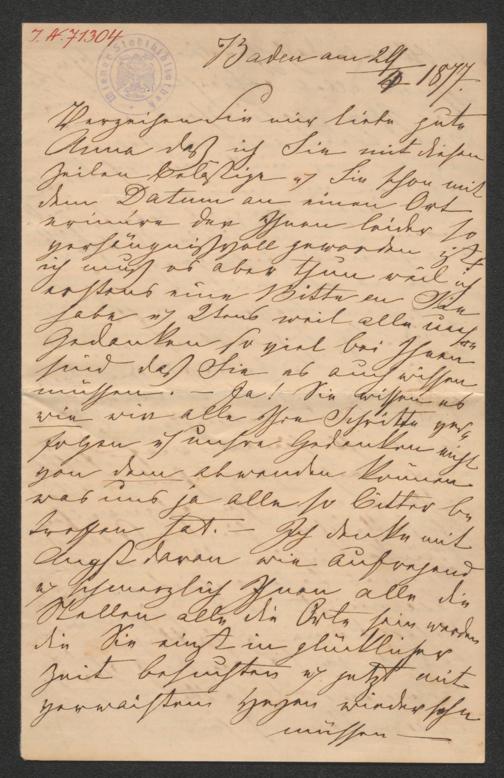 I.N. 71304
Wiener Stadtbibliothek
Baden am 29/ 1877.
Verzeihen Sie mir liebe gute
Anna daß ich Sie mit diesen
Zeilen belästige u Sie schon mit
dem Datum an einen Ort
erinnere der Ihnen leider so
verhängnißvoll geworden ist!
ich muß es aber thun weil ich
erstens eine Bitte an Sie
habe u 2tens weil alle unsre
Gedanken so viel bei Ihnen
sind daß Sie es auch wissen
müssen. – Ja! Sie wissen es
wie wir alle Ihre Schritte ver-
folgen u unsre Gedanken nicht
von dem abwenden können
was uns ja alle so bitter be
troffen hat. – Ich denke mit
Angst daran wie aufregend
u schmerzlich Ihnen alle die
Stellen alle die Orte sein werden
die Sie einst in glücklicher
Zeit besuchten u jetzt mit
verwaistem Herzen wiedersehn
müssen –